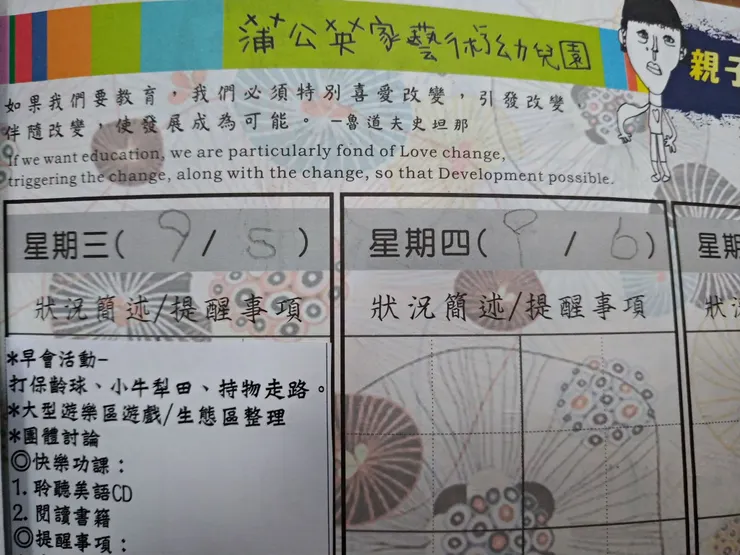 蒲公英家藝術幼兒園
親子
如果我們要教育，我們必須特別喜愛改變，引發改變，
伴隨改變，使發展成為可能。－魯道夫史坦那
If we want education, we are particularly fond of Love change,
triggering the change, along with the change, so that Development possible.
星期三( 9 / 5 )
狀況簡述/提醒事項
*早會活動-
打保齡球、小牛犁田、持物走路。
*大型遊樂區遊戲/生態區整理
*團體討論
◎快樂功課：
1. 聆聽美語CD
2. 閱讀書籍
◎提醒事項：
星期四( 9 / 6 )
狀況簡述/提醒事項
星期
狀況